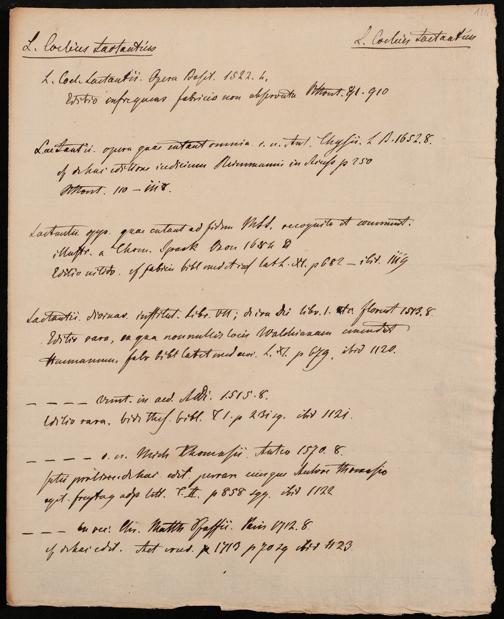 L. Coelius Lactantius
L. Coelius Lactantius
L. Coel. Lactantii. Opera Basil. 1522. 4,
Editio infrequens fabricio non observata 910
Lactantii. opera quae extant omnia. c. n. Ant. L B. 1652. 8.
cf de hac editione iudicium Reimmanni in p 250
110 –
Lactantii opp. quae extant ad fidem Mss. recognita et comment.
illustr. a Thom. Spark Oxon 1684 8
Editio nitida. cf fabric bibl med et inf lat L. XI. p 682 – ibid. 1119
Lactantii. divinar. institut. libr. VII; de ira Dei libr. 1. etc. florent 1513. 8
Editio rara, ex qua nonnullis locis Walchianam emendat
Heumannus, fabr bibl lat et med aev. L. XI. p 679, ibid 1120.
– – – – venet. in aed. Aldi. 1515. 8.
Editio rara. vide thes. bibl. T 1. p 23 sq. ibid 1121.
– – – – c. n. Mich Thomasii. Antv 1570. 8.
de hac edit. Thomasio
egit. freytag adp litt. T. II. p 858 sqq. ibid 1122
– – – ex rec. Chr. Matth Pfaffii. Paris 1712. 8
cf de hac edit. Act erud. p 1713 p 70 sq ibid 1123